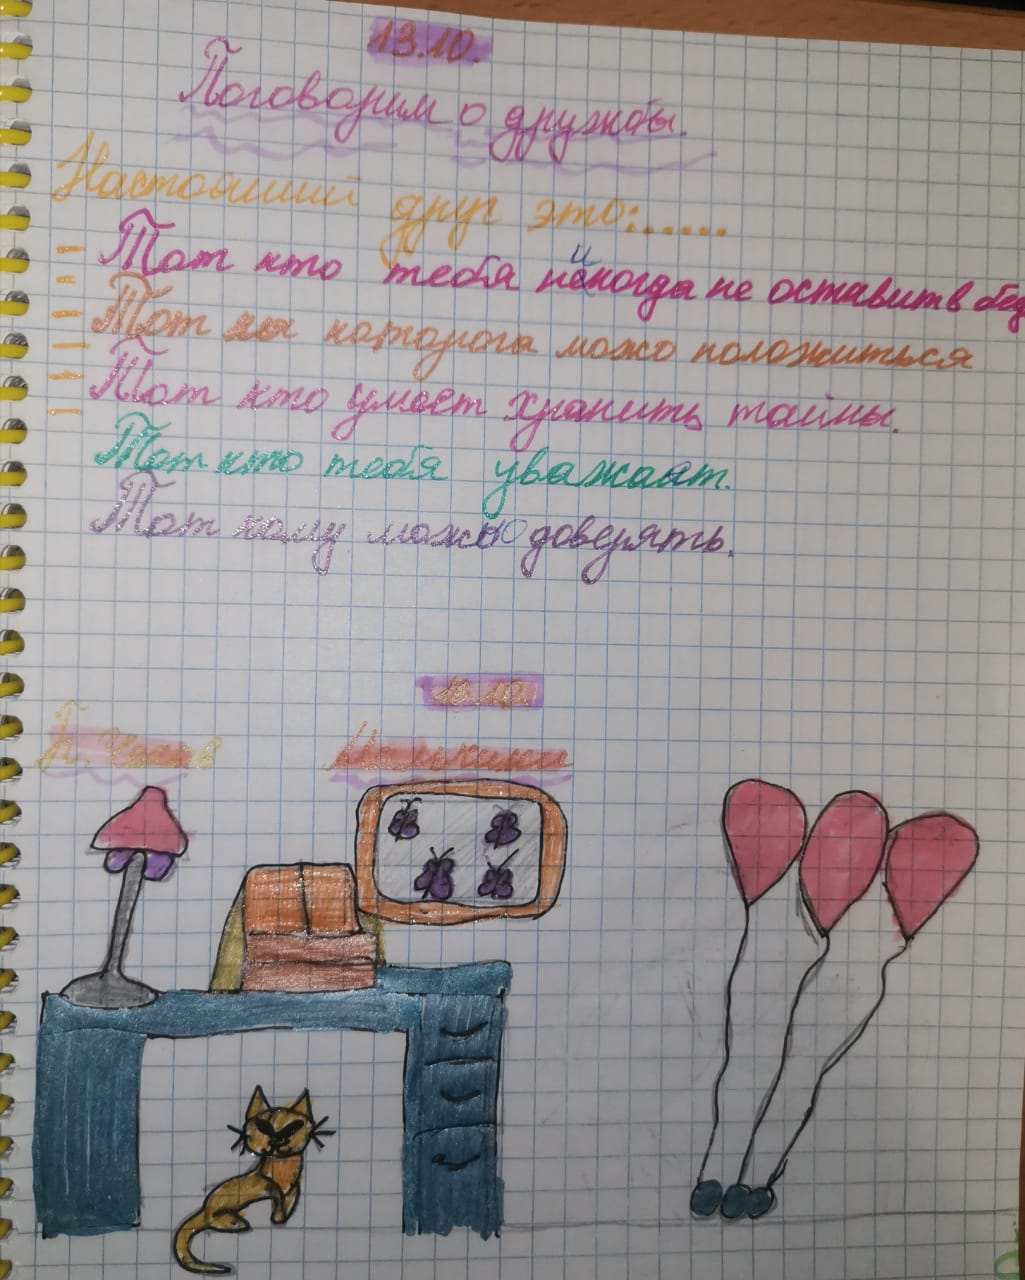 13.10.
Поговорим о дружбы.
Настоящий друг это:......
- Тот кто тебя никогда не оставит в бед
- Тот на которога можо положиться
- Тот кто умеет хранить тайны.
Тот кто тебя уважает.
Тот кому можно доверять.
А. Чехов
Мальчики